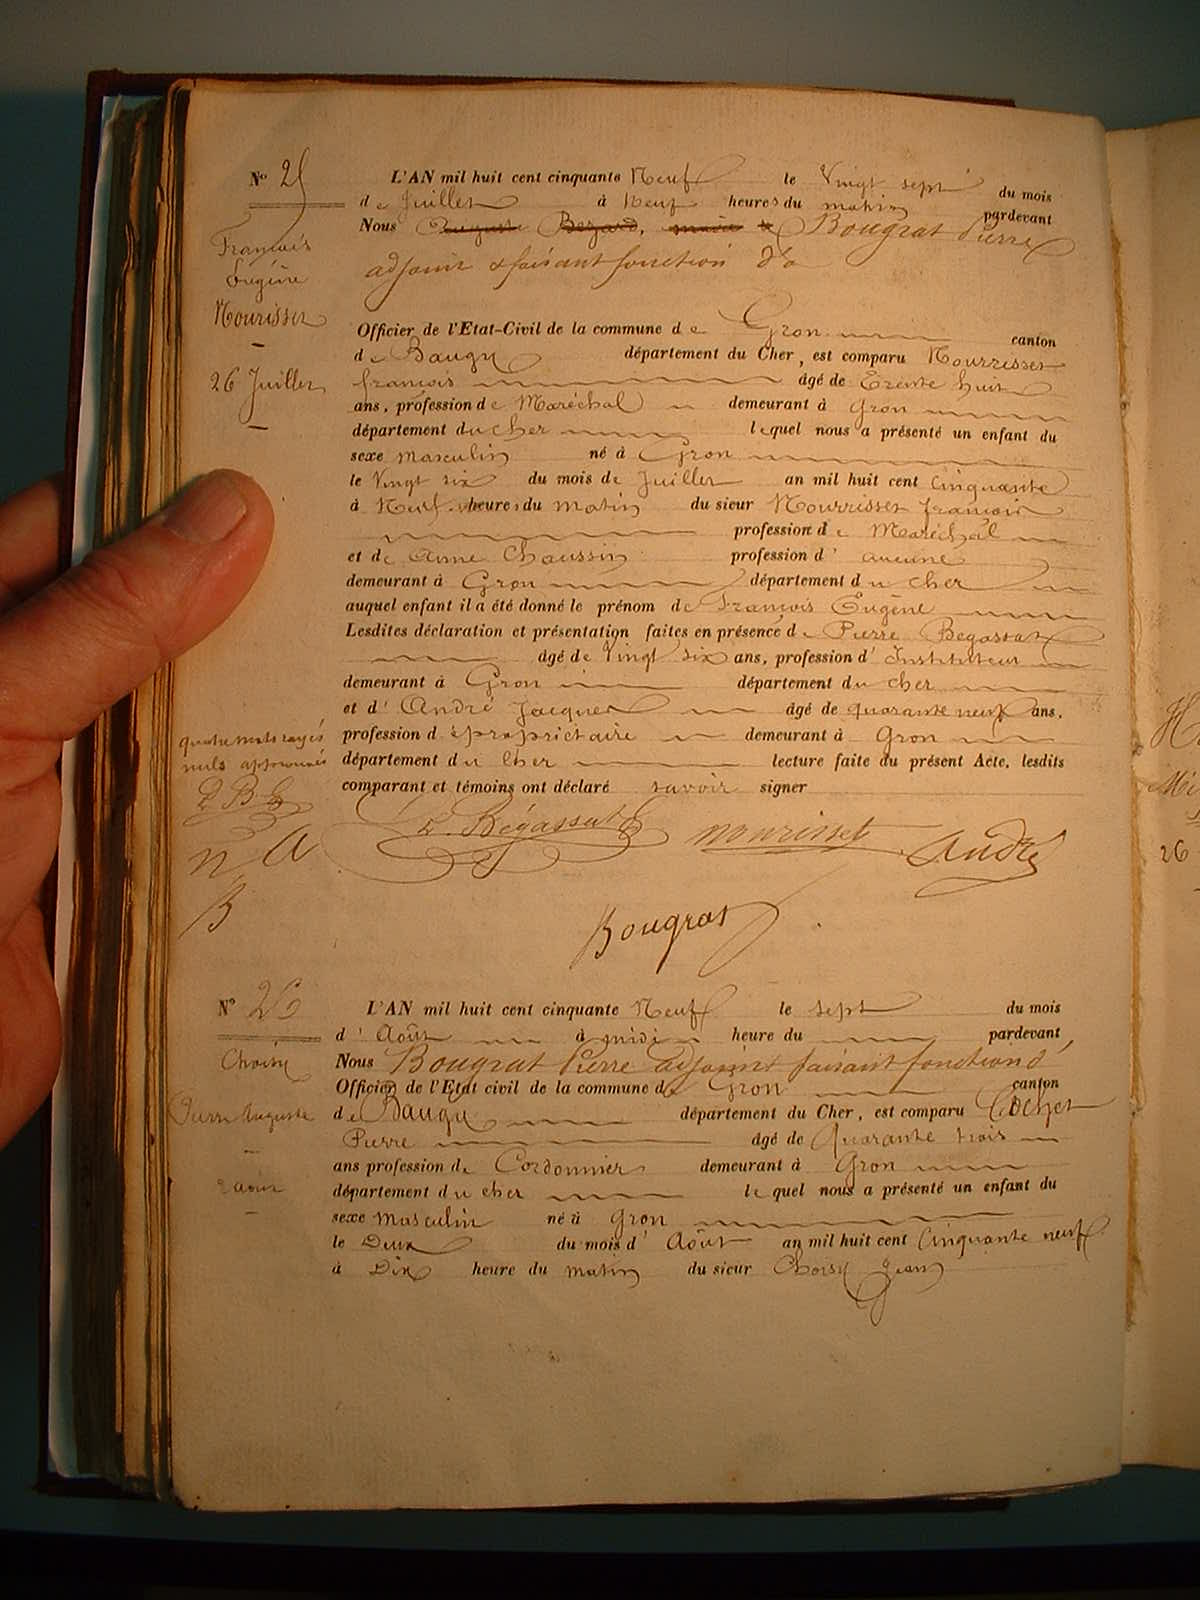 N° 25
L'AN mil huit cent cinquante Neuf le Vingt sept du mois
de Juillet à Neuf heures du matin pardevant
Nous Auguste Bezard, maire Bougrat Pierre
adjoint & faisant fonction d'o
François
Eugène
Nourisset
26 Juillet
Officier de l'Etat-Civil de la commune de Gron canton
de Baugy département du Cher, est comparu Nourrisset
françois âgé de Trente huit
ans, profession de Maréchal demeurant à Gron
département du cher lequel nous a présenté un enfant du
sexe masculin né à Gron
le Vingt six du mois de Juillet an mil huit cent Cinquante
à Neuf heures du matin du sieur Nourrisset françois
profession de Maréchal
et de Anne Chaussin profession d' aucune
demeurant à Gron département du cher
auquel enfant il a été donné le prénom de François Eugène
Lesdites déclaration et présentation faites en présence de Pierre Bégassat
âgé de Vingt six ans, profession d' Instituteur
demeurant à Gron département du cher
et d' André Jacques âgé de quarante neuf ans,
profession de propriétaire demeurant à Gron
département du Cher lecture faite du présent Acte, lesdits
comparant et témoins ont déclaré savoir signer
quatre mots rayés
nuls approuvés
P B
n A
B
P. Bégassat nourisset André
Bougrat
N° 26
L'AN mil huit cent cinquante Neuf le sept du mois
d' Août à midi heure du pardevant
Nous Bougrat Pierre adjoint faisant fonction d'
Officier de l'Etat civil de la commune de Gron canton
de Baugy département du Cher, est comparu Cochet
Pierre âgé de Quarante trois
ans profession de Cordonnier demeurant à Gron
département du cher lequel nous a présenté un enfant du
sexe masculin né à Gron
le Deux du mois d' Août an mil huit cent Cinquante neuf
à Dix heure du matin du sieur Choisy Jean
Choisy
Pierre Auguste
2 août
26